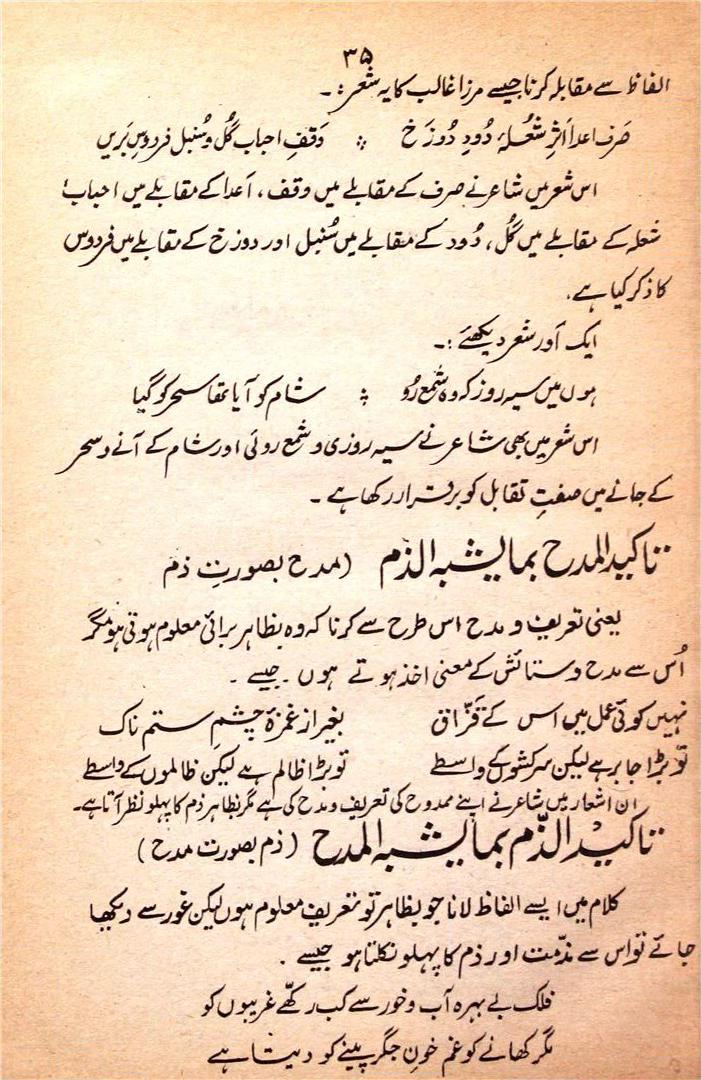 ۳۵
الفاظ سے مقابلہ کرنا جیسے مرزا غالب کا یہ شعر :۔
صَرف اعدا اثرِ شُعلۂ دُودِ دُوزَخ ؞ وَقفِ احباب گُل و سُنبل فردوسِ بَریں
اس شعر میں شاعر نے صرف کے مقابلے میں وقف ، اَعدا کے مقابلے میں احباب ،
شعلہ کے مقابلے میں گُل ، دُود کے مقابلے میں سُنبل اور دوزخ کے مقابلے میں فردوس
کا ذکر کیا ہے ۔
ایک اَور شعر دیکھئے :۔
ہوں میں سیہ روز کہ وہ شمع رُو ؞ شام کو آیا تھا سحر کو گیا
اس شعر میں بھی شاعر نے سیہ روزی و شمع روئی اور شام کے آنے و سحر
کے جانے میں صفتِ تقابل کو برقرار رکھا ہے ۔
تاکید المدح بما یشبہ الذم (مدح بصورتِ ذم
یعنی تعریف و مدح اس طرح سے کرنا کہ وہ بظاہر برائی معلوم ہوتی ہو مگر
اُس سے مدح و ستائش کے معنی اخذ ہوتے ہوں ۔ جیسے ۔
نہیں کوئی عمل میں اس کے قَزّاق بغیر از غمزۂ چشمِ ستم ناک
تو بڑا جابر ہے لیکن سرکشوں کے واسطے تو بڑا ظالم ہے لیکن ظالموں کے واسطے
ان اشعار میں شاعر نے اپنے ممدوح کی تعریف و مدح کی ہے مگر بظاہر ذم کا پہلو نظر آتا ہے۔
تاکید الذّم بما یشبہ المدح (ذم بصورت مدح)
کلام میں ایسے الفاظ لانا جو بظاہر تو تعریف معلوم ہوں لیکن غور سے دیکھا
جائے تو اس سے مذّمت اور ذم کا پہلو نکلتا ہو جیسے ۔
فلک بے بہرہ آب و خور سے کب رکھّے غریبوں کو
مگر کھانے کو غم خونِ جگر پینے کو دیتا ہے